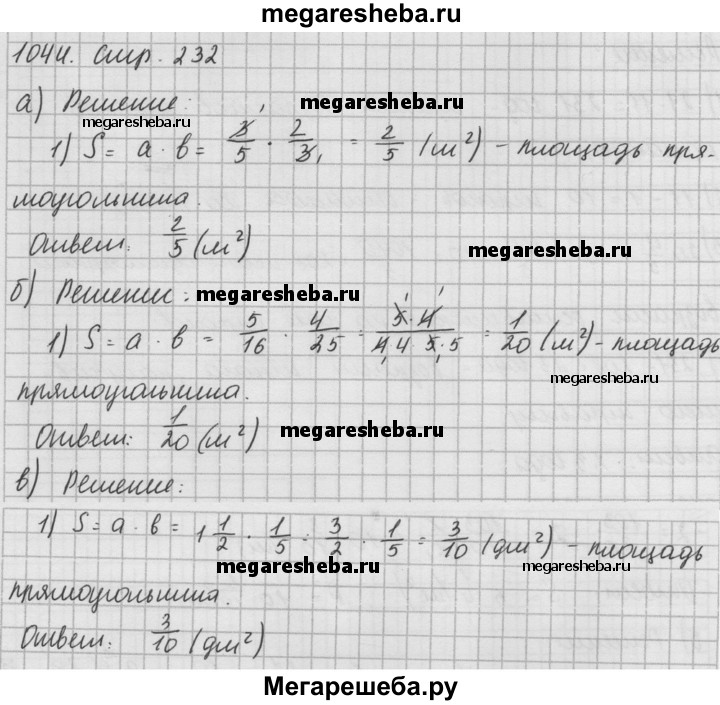 megaresheba.ru
1044. стр. 232
а) Решение: megaresheba.ru
megaresheba.ru
1) S = a · b = 3/5 · 2/3 = 2/5 (м²) - площадь пря-
моугольника.
Ответ: 2/5 (м²)
megaresheba.ru
б) Решение: megaresheba.ru
1) S = a · b = 5/16 · 4/25 = 5·4/4·4·5·5 = 1/20 (м²) - площадь
megaresheba.ru
прямоугольника.
Ответ: 1/20 (м²) megaresheba.ru
в) Решение:
1) S = a · b = 1 1/2 · 1/5 = 3/2 · 1/5 = 3/10 (дм²) - площадь
megaresheba.ru megaresheba.ru
прямоугольника.
Ответ: 3/10 (дм²)
Мегарешеба.ру